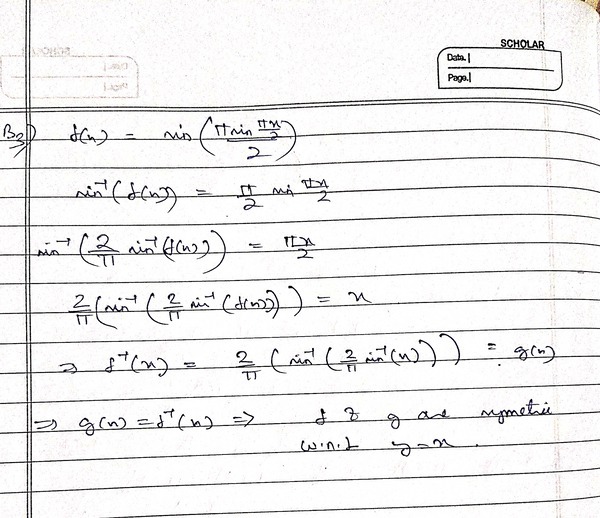 SCHOLAR
Date.|
Page.|
B2) f(x) = sin(π sin πx/2 / 2)
sin⁻¹(f(x)) = π/2 sin πx/2
sin⁻¹(2/π sin⁻¹(f(x))) = πx/2
2/π(sin⁻¹(2/π sin⁻¹(f(x)))) = x
⇒ f⁻¹(x) = 2/π (sin⁻¹(2/π sin⁻¹(x))) = g(x)
⇒ g(x) = f⁻¹(x) ⇒ f & g are symetric
w.r.t y=x.